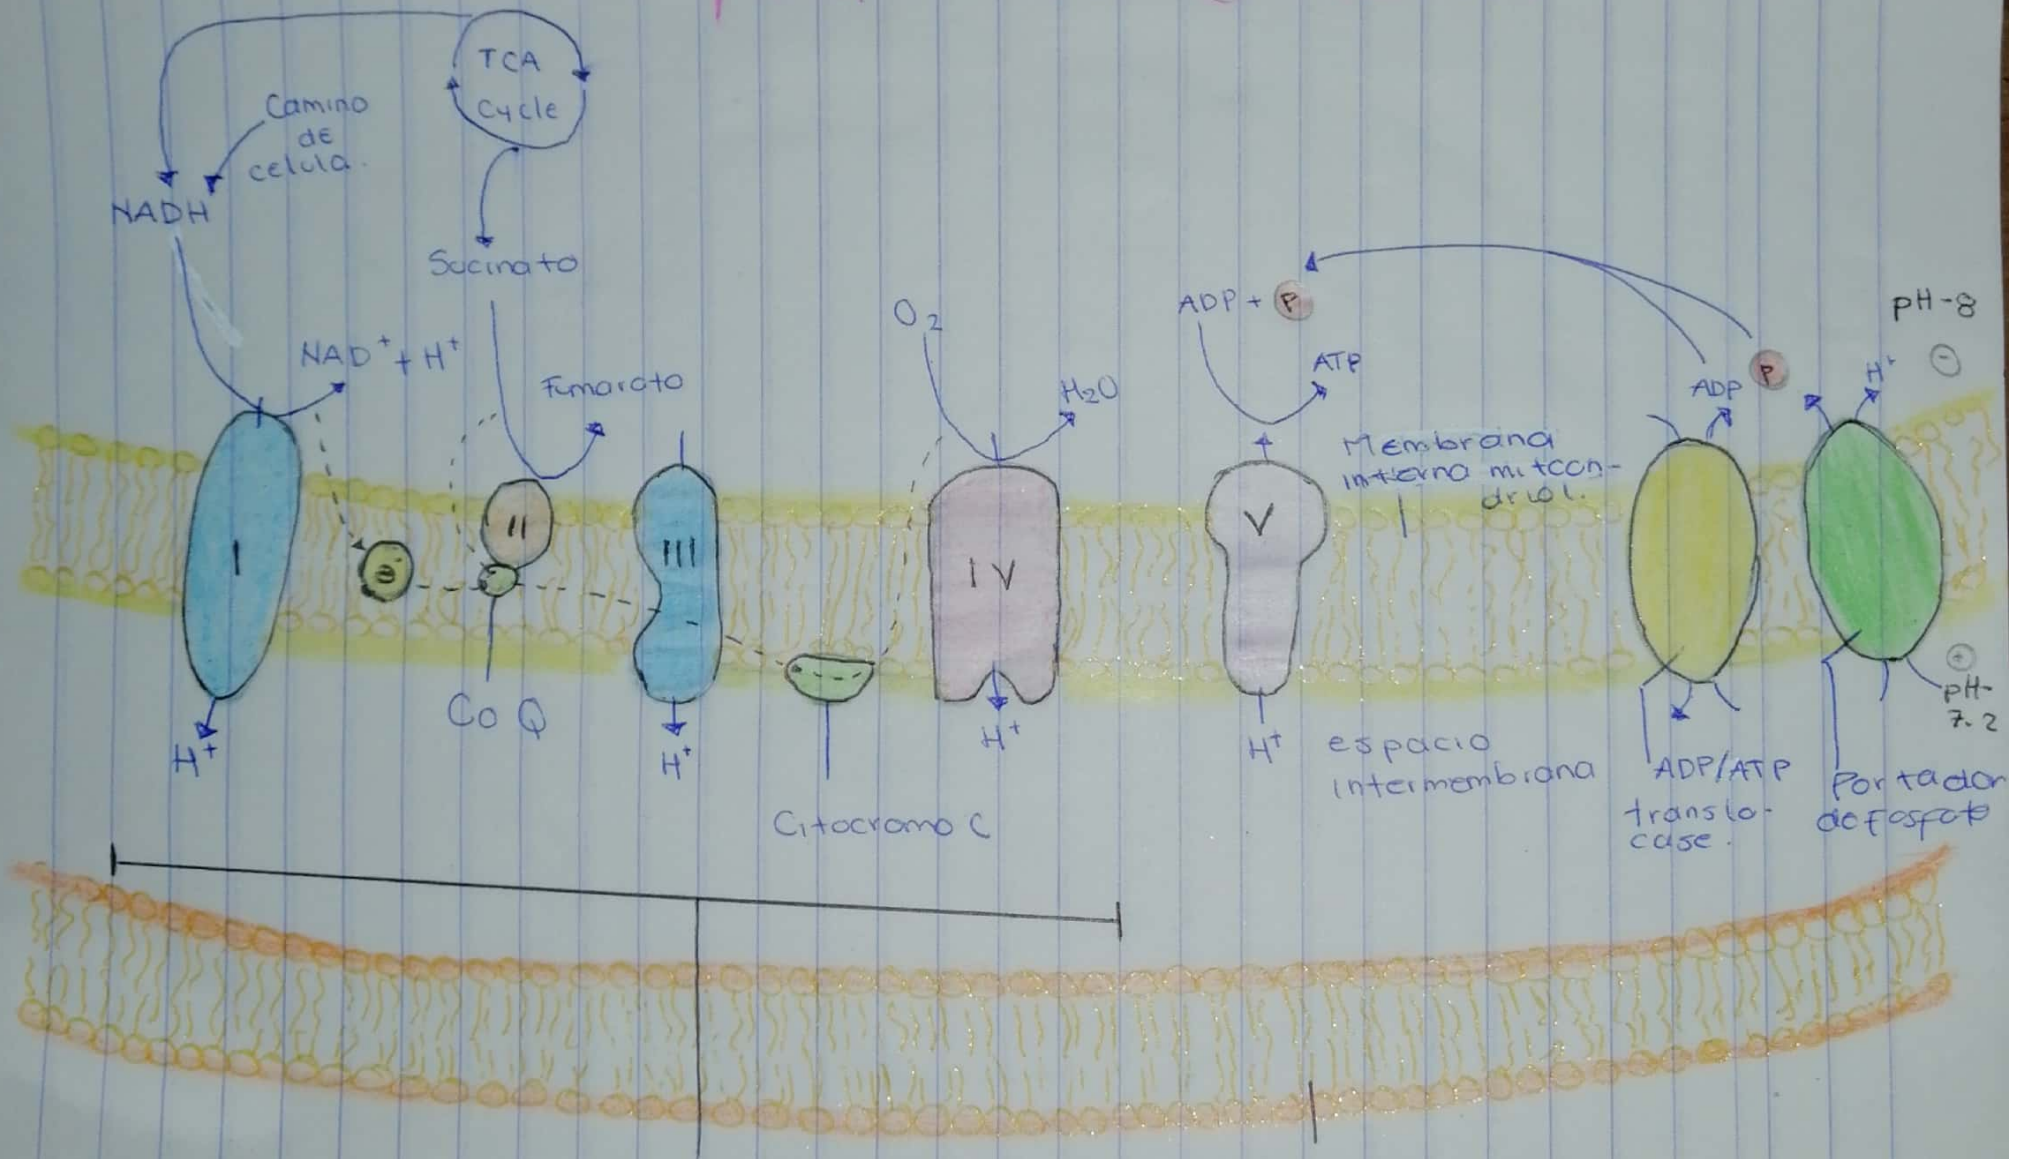 TCA
Cycle
Camino
de
celula.
NADH
Sucinato
NAD⁺ + H⁺
Fumarato
O₂
H₂O
ADP + P
ATP
ADP P
H⁺
pH-8
-
Membrana
interna mitcon-
drial.
I
e⁻
II
III
IV
V
+
pH-
7.2
H⁺
Co Q
H⁺
H⁺
H⁺
Citocromo C
espacio
intermembrana
ADP/ATP
translo-
case.
Portador
de Fosfato